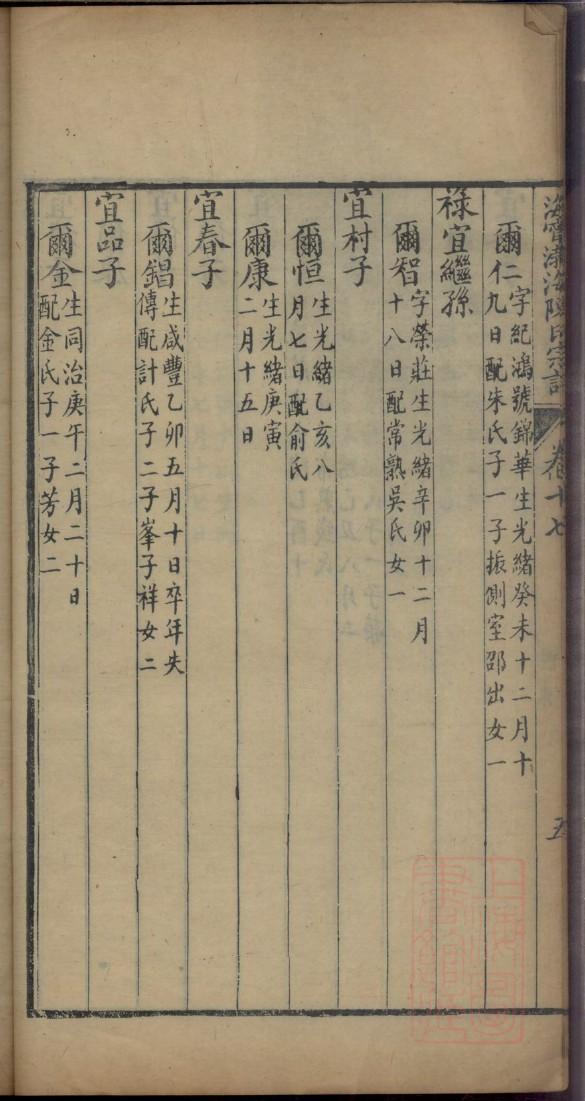 海寧漁海陳氏宗譜
卷十七
五
爾仁字紀鴻號錦華生光緒癸未十二月十
九日配朱氏子一子振側室邵出女一
祿宜繼孫
爾智字榮莊生光緒辛卯十二月
十八日配常熟吳氏女一
宜村子
爾恒生光緒乙亥八
月七日配俞氏
爾康生光緒庚寅
二月十五日
宜春子
爾錩生咸豐乙卯五月十日卒年失
傳配計氏子二子峯子祥女二
宜品子
爾金生同治庚午二月二十日
配金氏子一子芳女二